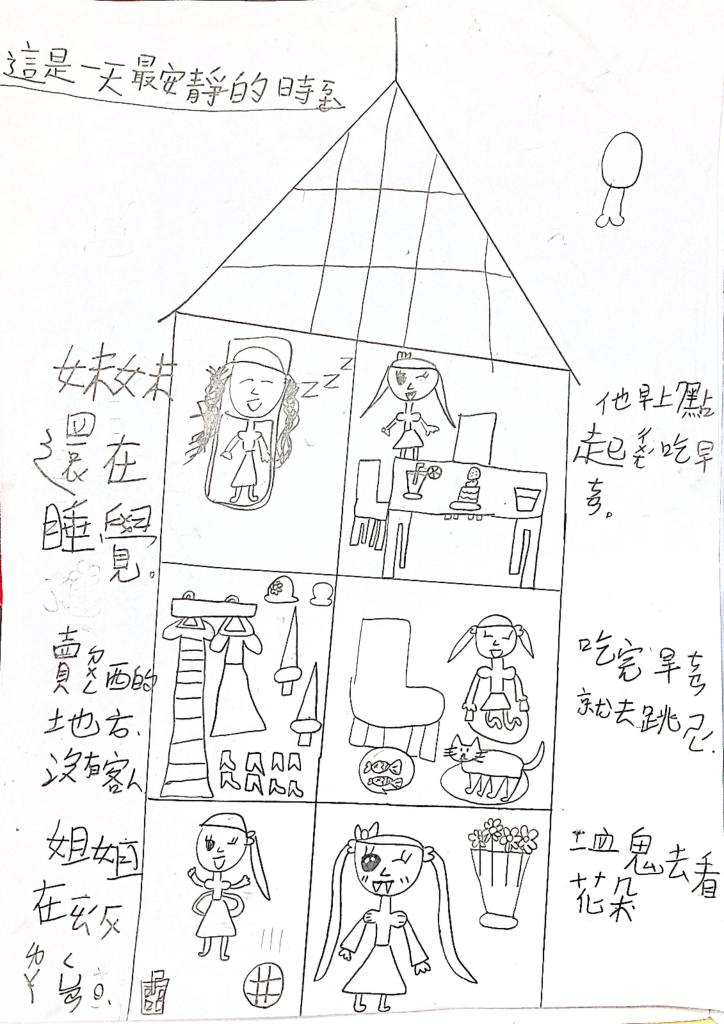 這是一天最安靜的時
妹妹
還在
睡覺。
他早上點
起ㄔㄨㄤˊ吃早
賣ㄉㄨㄥ西的
地方.
沒有客人
吃完早
就去跳
姐姐
在
鬼去看
花朵